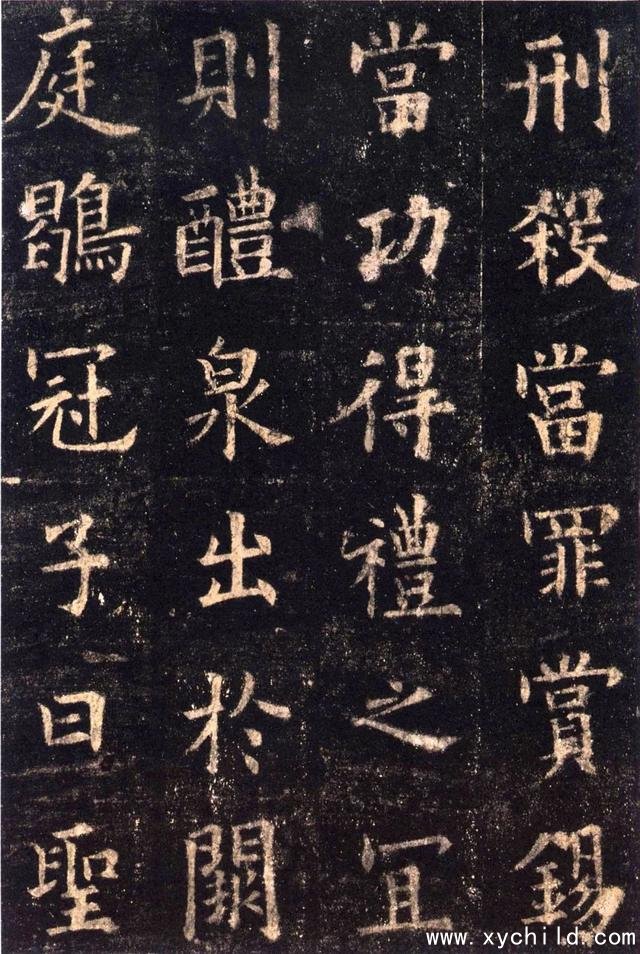 刑殺當罪賞錫
當功得禮之宜
則醴泉出於闕
庭鶡冠子曰聖
www.xychild.com